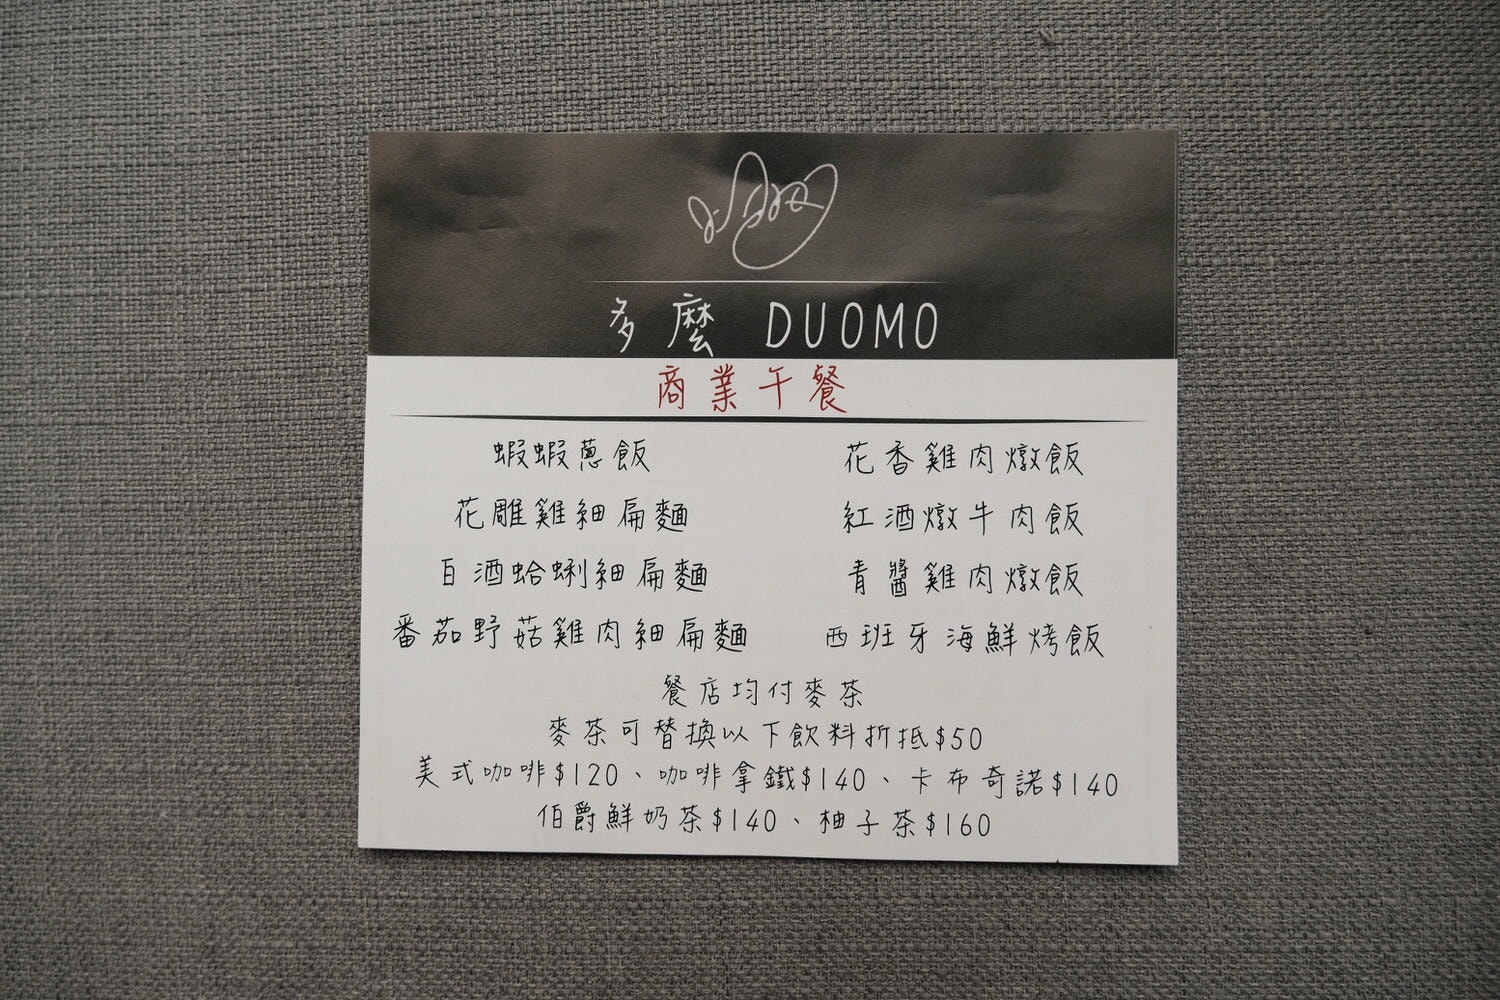 多麼 DUOMO
商業午餐
蝦蝦蔥飯
花香雞肉燉飯
花雕雞細扁麵
紅酒燉牛肉飯
白酒蛤蜊細扁麵
青醬雞肉燉飯
番茄野菇雞肉細扁麵
西班牙海鮮烤飯
餐店均付麥茶
麥茶可替換以下飲料折抵$50
美式咖啡$120、咖啡拿鐵$140、卡布奇諾$140
伯爵鮮奶茶$140、柚子茶$160